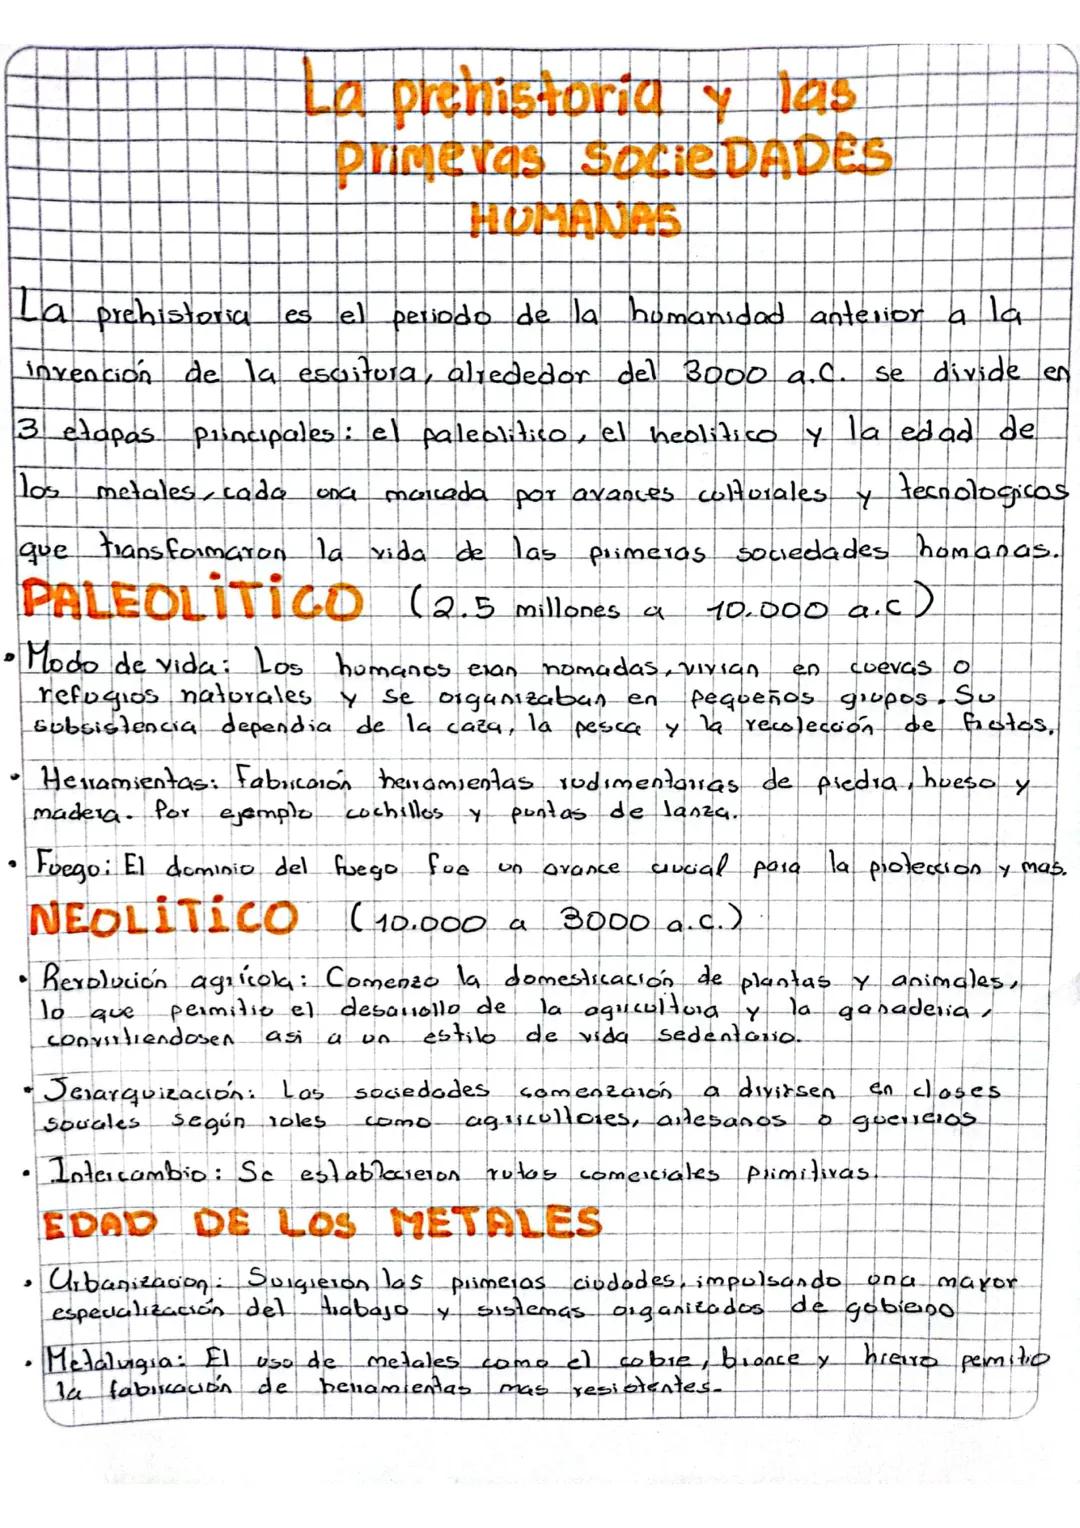 La prehistoria y las
primeras SOCieDADES
HUMANAS
La prehistoria es el periodo de la humanidad anterior a la
invención de la escritura, alrededor del 3000 a.C. se divide en
3 etapas principales: el paleolitico, el neolitico y la edad de
los metales, cada una marcada por avances culturales y tecnologicos
que transformaron la vida de las primeras sociedades humanas.
PALEOLÍTICO (2.5 millones a 10.000 a.c)
• Modo de vida: Los humanos eran nomadas, vivian en cuevas o
refugios naturales y se organizaban en pequeños grupos. Su
subsistencia dependia de la caza, la pesca y la recolección de frutos.
• Herramientas: Fabricarón herramientas rudimentarias de piedra, hueso y
madera. Por ejemplo cuchillos y puntas de lanza.
• Fuego: El dominio del fuego fue un avance crucial para la proteccion y mas.
NEOLÍTICO (10.000 a 3000 a.c.)
• Revolución agrícola: Comenzo la domesticación de plantas y animales,
lo que permitio el desarrollo de la agricultura y la ganaderia,
convirtiendosen asi a un estilo de vida sedentario.
• Jerarquización: Las sociedades comenzarón a divirsen en clases
sociales según roles como agricultores, artesanos o guerreros
• Intercambio: Se establecieron rutas comerciales primitivas.
EDAD DE LOS METALES
• Urbanizacion: Surgieron las primeras ciudades, impulsando una mayor
especialización del trabajo y sistemas organizados de gobierno
• Metalurgia: El uso de metales como el cobre, bronce y hierro permitio
la fabricación de herramientas mas resistentes.